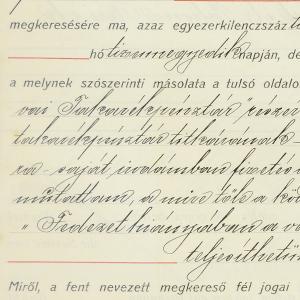 megkeresésére ma, azaz egyezerkilenczszáz
hó tizennegyedik napján, de
a melynek szószerinti másolata a tulsó oldalo
vai Takarékpénztár" részv
takarékpénztár titkárának
ra saját irodámban fizetés
mutattam, a mire tőle a kö
"Fedezet hiányjában a
teljesíthető
Miről, a fent nevezett megkereső fél jogai